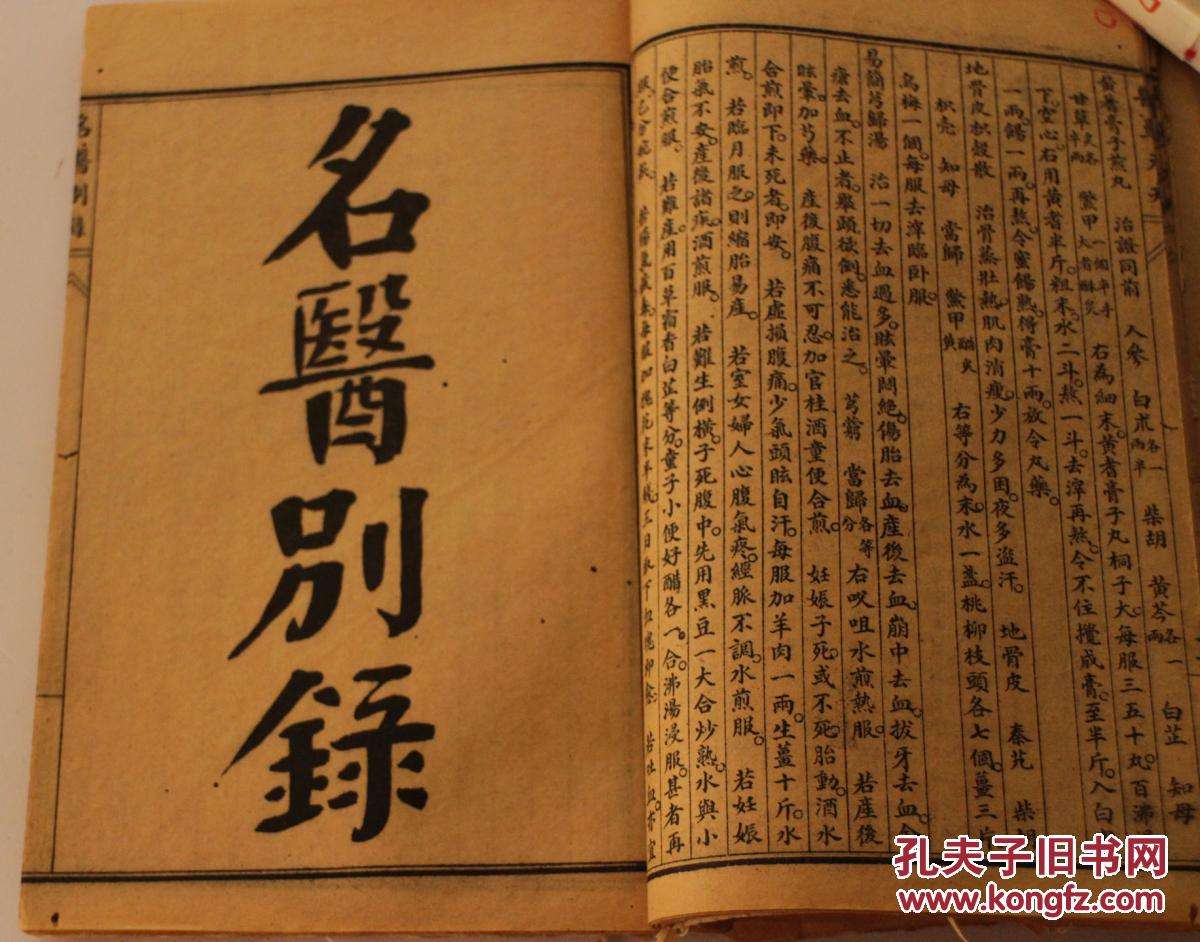 黃耆膏子煎丸　治證同前　人參　白朮各一兩半　柴胡　黃芩各一兩　白芷　知母
甘草炙各半兩　鱉甲一個半手大者酥炙　右為細末黃耆膏子丸桐子大每服三五十丸百沸
下。空心。右用黃耆半斤粗末。水二斗熬一斗。去滓再熬。令不住攪成膏。至半斤。入白
一兩。餳一兩。再熬。令蜜餳熟。得膏十兩。放令丸藥。
地骨皮枳殼散　治骨蒸壯熱。肌肉消瘦。少力多困。夜多盜汗。　地骨皮　秦艽　柴胡
枳壳　知母　當歸　鱉甲醋炙黃　右等分為末。水一盞。桃柳枝頭各七個。薑三片
烏梅一個。每服去滓臨卧服。
易簡芎歸湯　治一切去血過多。眩暈悶絶。傷胎去血。產後去血。崩中去血。拔牙去血。
瘡去血。不止者。舉頭欲倒。悉能治之。　芎藭　當歸各等分　右㕮咀水煎熱服　若產後
眩暈。加芍藥。　產後腹痛不可忍。加官桂酒童便合煎。　妊娠子死。或不死。胎動。酒水
合煎即下。未死者。即安。　若虛損腹痛。少氣頭眩自汗。每服加羊肉一兩。生薑十斤。水
煎。　若臨月服之。則縮胎易產。　若室女婦人心腹氣疼。經脈不調。水煎服。　若妊娠
胎氣不安。產後諸疾。酒煎服。　若難生倒橫。子死腹中。先用黑豆一大合炒熟。水與小
便合煎服。　若難產用百草霜香白芷等分。童子小便好醋各一。合沸湯浸服。甚者再
名醫別錄
名醫別錄
孔夫子旧书网
www.kongfz.com